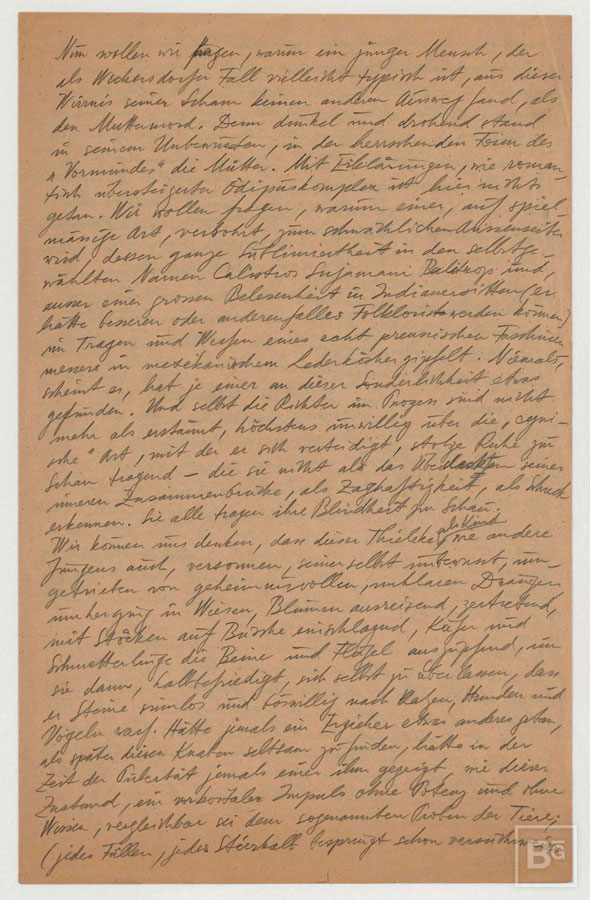 Nun wollen wir fragen, warum ein junger Mensch, der
als Wickersdorfer Fall vielleicht typisch ist, aus dieser
Wirrnis seiner Scham keinen anderen Ausweg fand, als
den Muttermord. Denn dunkel und drohend stand
in seinem Unbewussten, in der herrschenden Form des
„Vormundes" die Mutter. Mit Erklärungen, wie roman-
tisch übersteigerter Ödipuskomplex ist hier nichts
getan. Wir wollen fragen, warum einer, auf spiel
mässige Art, verbohrt, zum schwächlichen Aussenseiter
wird, dessen ganze Sublimiertheit in den selbstge-
wählten Namen und,
ausser einer grossen Belesenheit in Indianersitten (er
hätte besseren oder anderenfalles Folklorist werden können)
im Tragen und Werfen eines echt preussischen Faschinen
messers in mexikanischem Lederköcher gipfelt. Niemals,
scheint es, hat je einer an dieser Sonderlichkeit etwas
gefunden. Und selbst die Richter im Prozess sind nicht
mehr als erstaunt, höchstens unwillig über die „cyni-
sche" Art, mit der er sich verteidigt, stolze Ruhe zur
Schau tragend – die sie nicht als das seines
inneren Zusammenbruchs, als Zaghaftigkeit, als Schreck
erkennen. Sie alle tragen ihre Blindheit zur Schau.
Wir können uns denken, dass dieser Thieleke, als Kind wie andere
Jungens auch, versonnen, seiner selbst unbewusst, um-
getrieben von geheimnisvollen, unklaren Drängen
umherging in Wiesen, Blumen ausreissend, zertretend,
mit Stöcken auf Büsche einschlagend, Käfer und
Schmetterlinge die Beine und Flügel auszupfend, um
sie dann, halbbefriedigt, sich selbst zu überlassen, dass
er Steine sinnlos und böswillig nach Katzen, Hunden und
Vögeln warf. Hätte jemals ein Erzieher etwas anderes getan,
als später diesen Knaben seltsam zu finden, hätte in der
Zeit der Pubertät jemals einer ihm gezeigt, wie dieser
Zustand, ein Impuls ohne Potenz und ohne
Wissen, vergleichbar sei dem sogenannten Proben der Tiere;
(jedes Füllen, jedes Stierkalb bespringt schon
BG